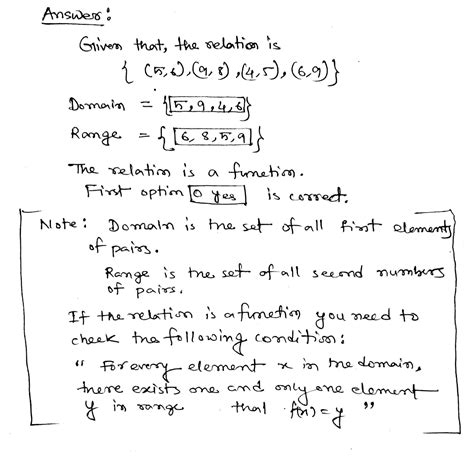 Answer:
Given that, the relation is
{ (5,6),(9,8),(4,5),(6,9)}
Domain = {5,9,4,6}
Range = {6,8,5,9}
The relation is a function.
First option 0 yes is correct.
Note: Domain is the set of all first elements
of pairs.
Range is the set of all second numbers
of pairs.
If the relation is a function you need to
check the following condition:
" For every element x in the domain,
there exists one and only one element
y in range that f(x)=y "